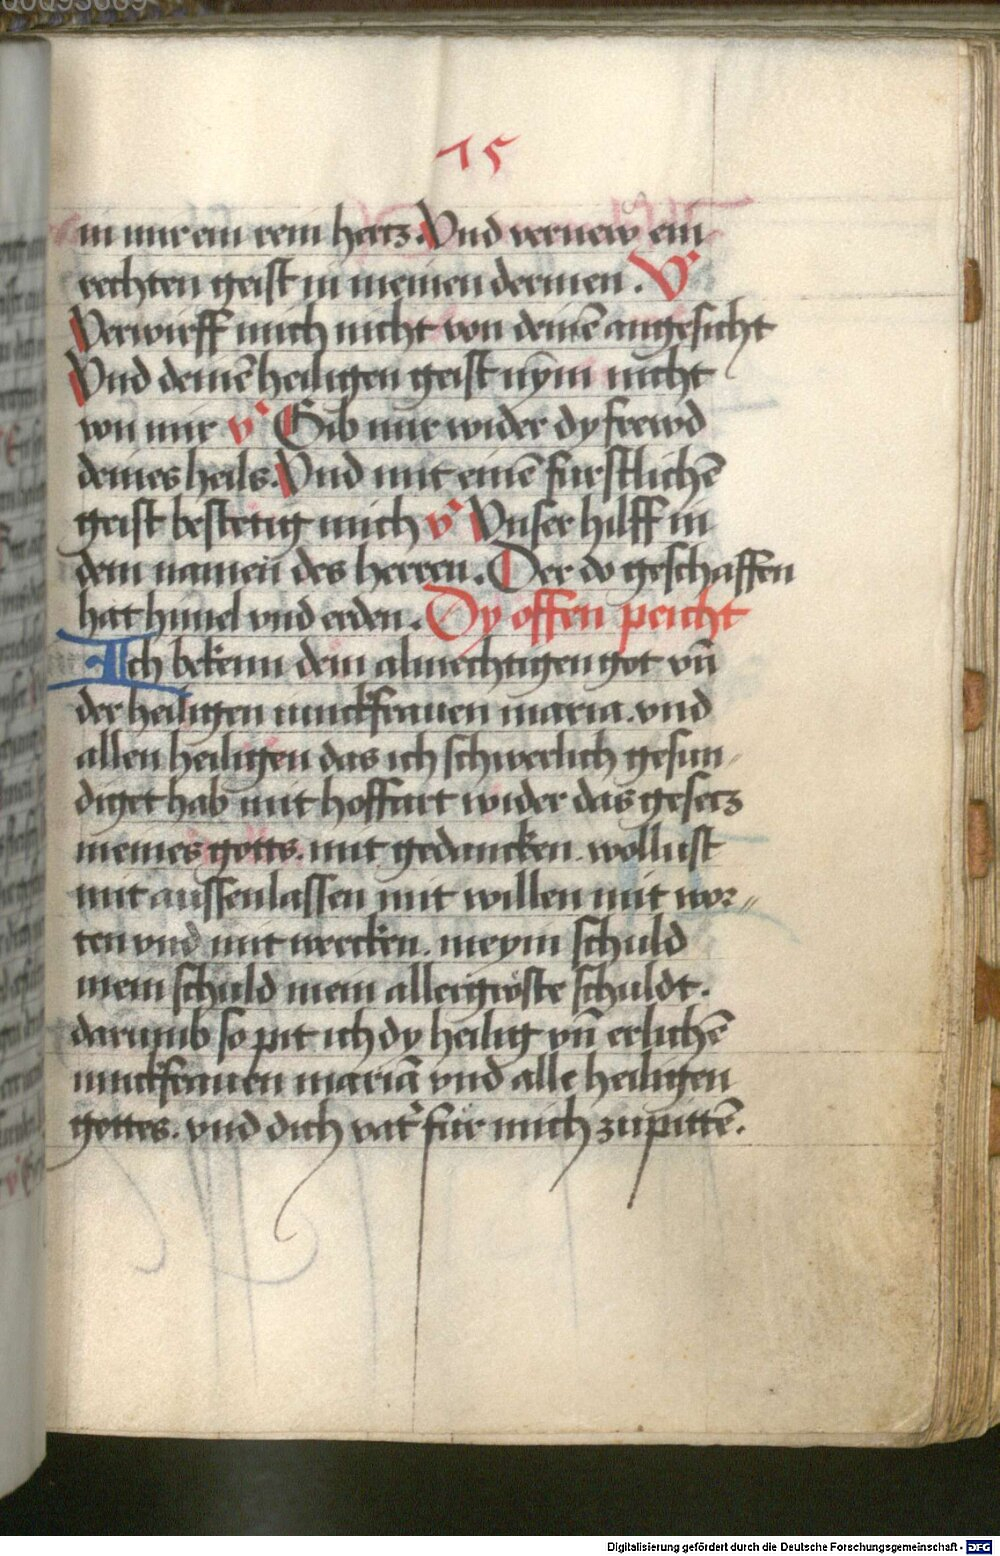 15
in mir ein rein hertz. Vnd vernew ein
rechten geist in meinen dermen. V'
Verwirff mich nicht von deinē angesicht
Vnd deinē heiligen geist nÿm nicht
von mir v' Gib mir wider dy frewd
deines heils. Vnd mit einē furstlichē
geist bestetig mich v' Vnser hilff in
dem namen des herren. Der do geschaffen
hat himel vnd erden. Dy offen peicht
Ich bekenn dem almechtigen got vn̄
der heiligen iunckfrauen maria. vnd
allen heiligen das ich schwerlich gesun-
diget hab mit hoffart wider das gesetz
meines gotts. mit gedancken. wollust
mit aussenlassen mit willen mit wor-
ten vnd mit wercken. meym schuld
mein schuld mein allergröste schuldt.
darumb so pit ich dy heilig vn̄ erlichē
iunckfrauen mariā vnd alle heiligen
gottes. vnd dich vat' für mich zu pittē.
Digitalisierung gefördert durch die Deutsche Forschungsgemeinschaft - DFG